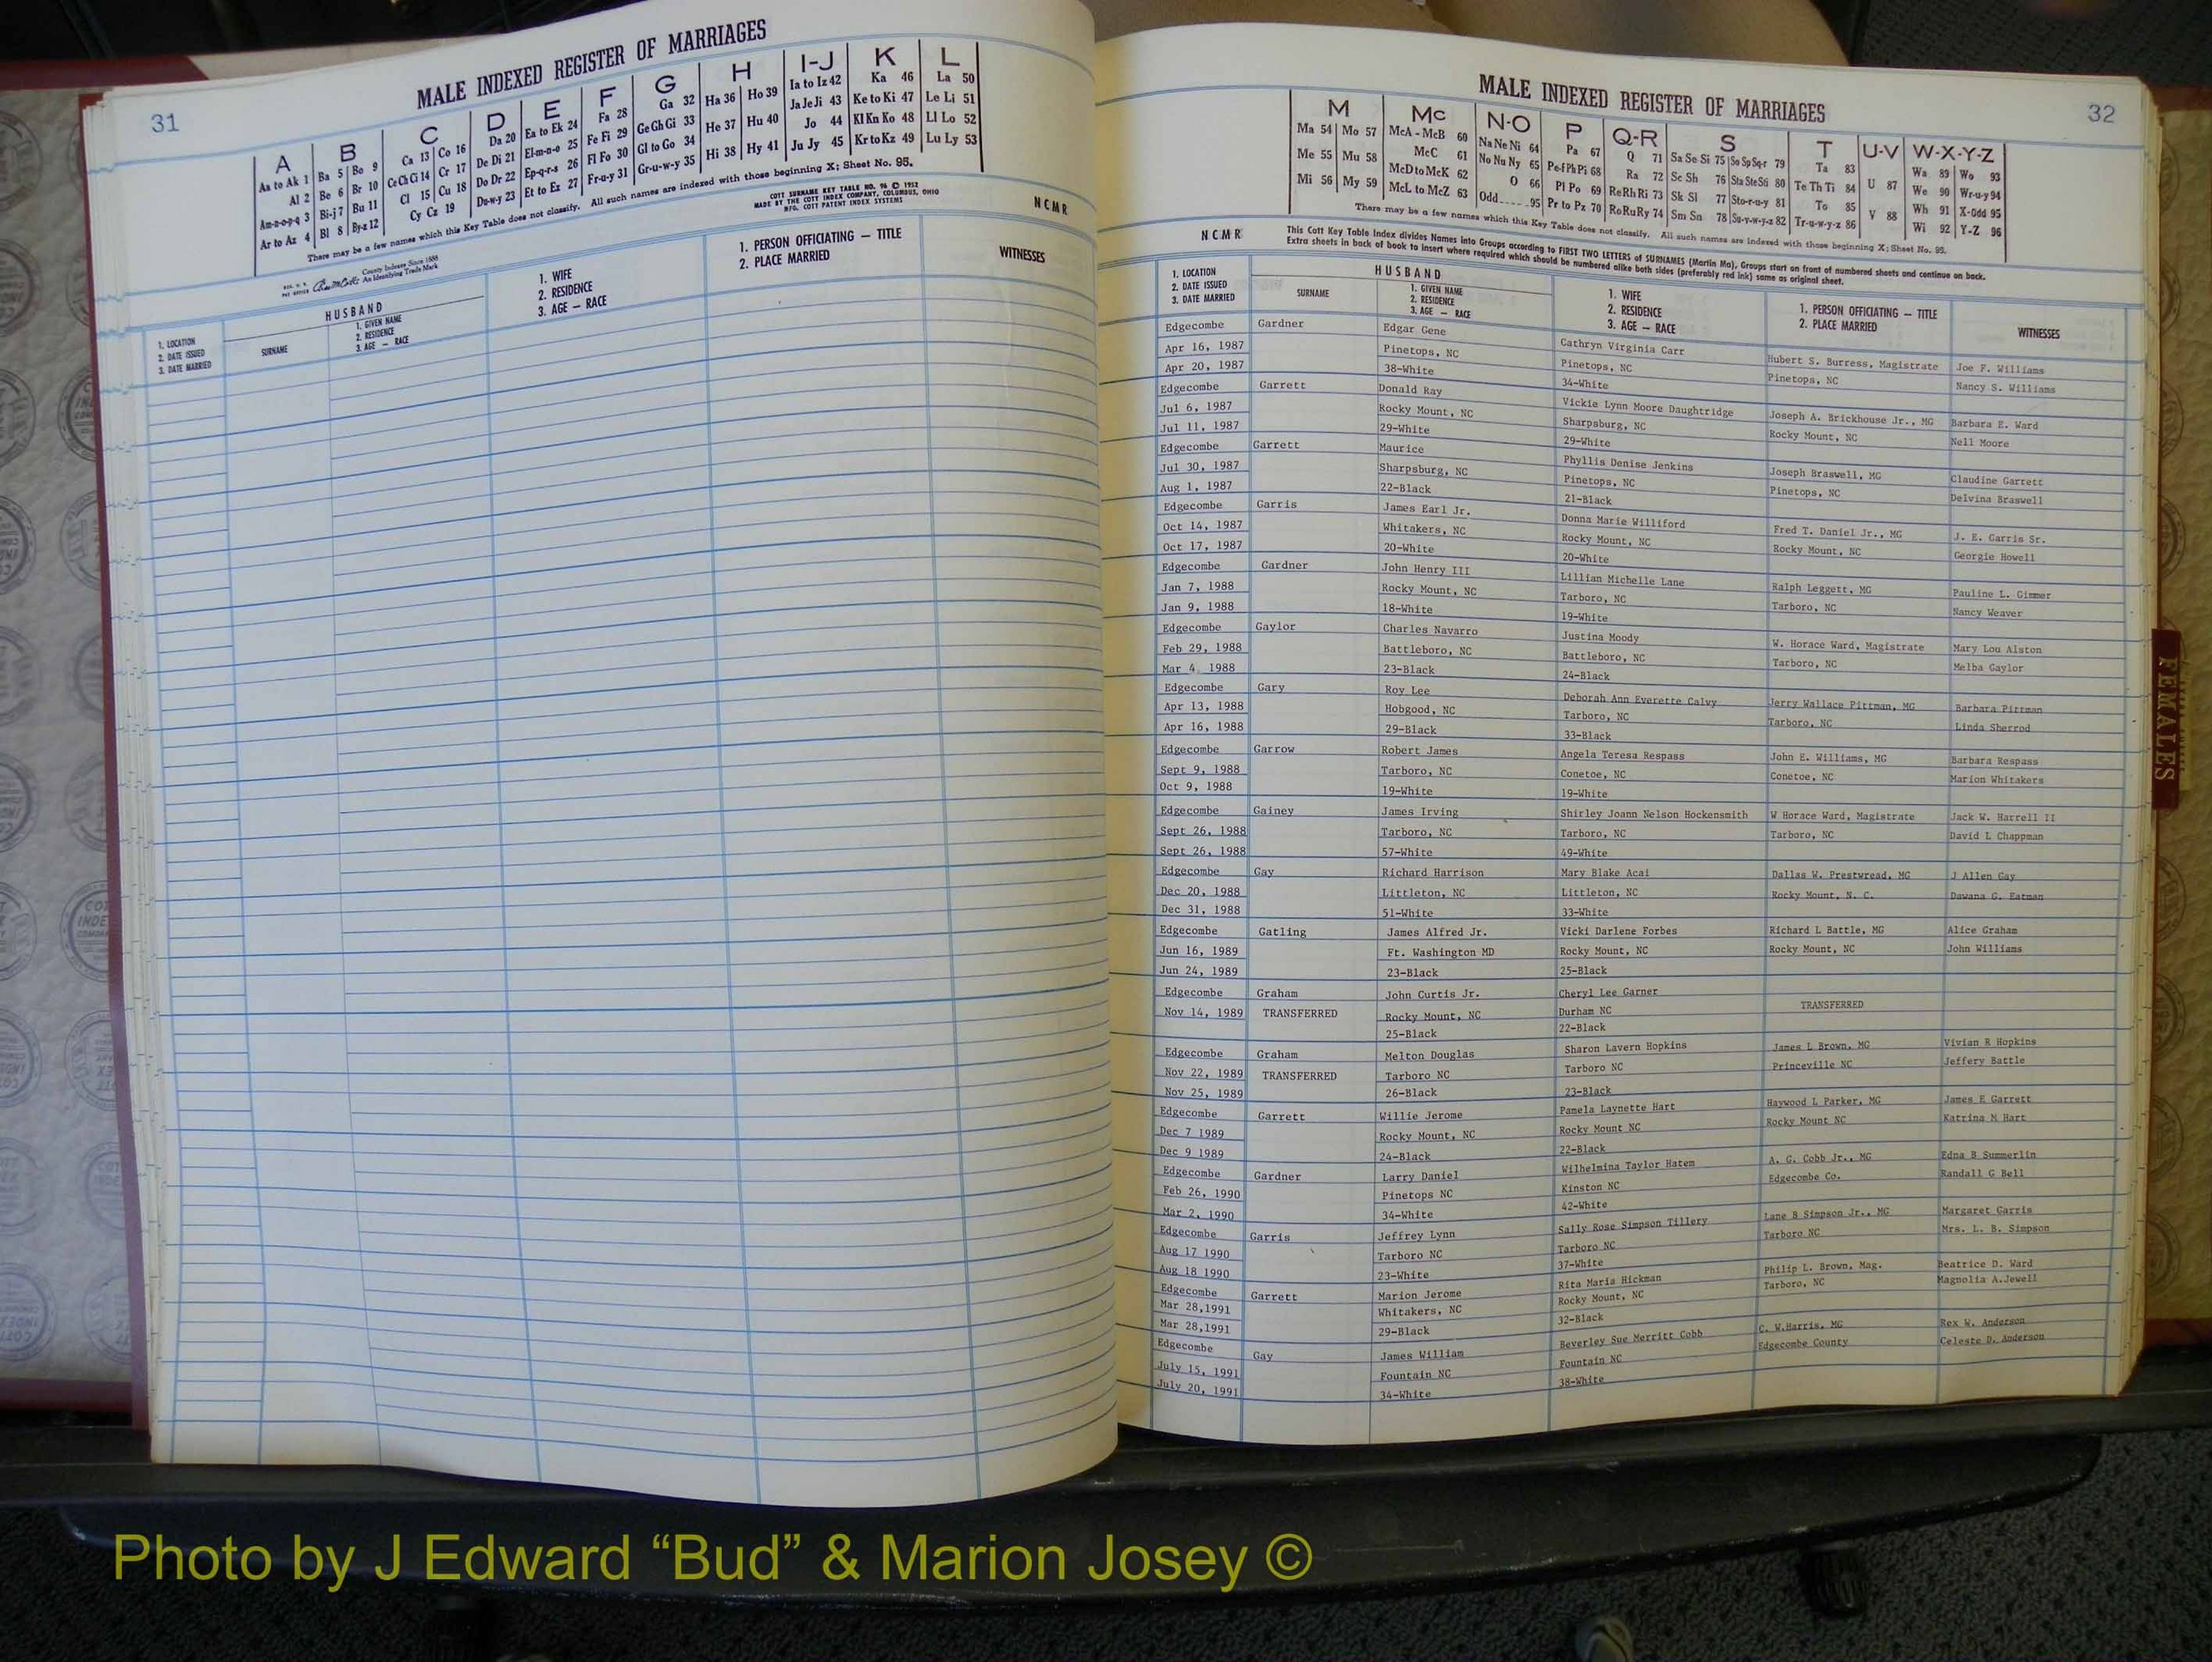 31
MALE INDEXED REGISTER OF MARRIAGES
A B C D E F G H I-J K L
Aa to Ak 1 Ba 5 Bo 9 Ca 13 Co 16 Da 20 Ea to Ek 24 Fa 28 Ga 32 Ha 36 Ho 39 Ia to Iz 42 Ka 46 La 50
Al 2 Be 6 Br 10 Ce Ch Ci 14 Cr 17 De Di 21 El-m-n-o 25 Fe Fi 29 Ge Gh Gi 33 He 37 Hu 40 Ja Je Ji 43 Ke to Ki 47 Le Li 51
Am-n-o-p-q 3 Bi-j 7 Bu 11 Cl 15 Cu 18 Do Dr 22 Ep-q-r-s 26 Fl Fo 30 Gl to Go 34 Hi 38 Hy 41 Jo 44 Kl Kn Ko 48 Ll Lo 52
Ar to Az 4 Bl 8 By-z 12 Cy Cz 19 Du-w-y 23 Et to Ez 27 Fr-u-y 31 Gr-u-w-y 35 Ju Jy 45 Kr to Kz 49 Lu Ly 53
There may be a few names which this Key Table does not classify. All such names are indexed with those beginning X; Sheet No. 95.
County Indexes Since 1888
An Identifying Trade Mark
COTT SURNAME KEY TABLE NO. 96 © 1952
MADE BY THE COTT INDEX COMPANY, COLUMBUS, OHIO
MFG. COTT PATENT INDEX SYSTEMS
NCMR
1. LOCATION
2. DATE ISSUED
3. DATE MARRIED
HUSBAND
SURNAME
1. GIVEN NAME
2. RESIDENCE
3. AGE — RACE
1. WIFE
2. RESIDENCE
3. AGE — RACE
1. PERSON OFFICIATING — TITLE
2. PLACE MARRIED
WITNESSES
MALE INDEXED REGISTER OF MARRIAGES
32
M Mc N-O P Q-R S T U-V W-X-Y-Z
Ma 54 Mo 57 McA - McB 60 Na Ne Ni 64 Pa 67 Q 71 Sa Se Si 75 So Sp Sq-r 79 Ta 83 U 87 Wa 89 Wo 93
Me 55 Mu 58 McC 61 No Nu Ny 65 Pe-f Ph Pi 68 Ra 72 Sc Sh 76 Sta Ste Sti 80 Te Th Ti 84 V 88 We 90 Wr-u-y 94
Mi 56 My 59 McD to McK 62 O 66 Pl Po 69 Re Rh Ri 73 Sk Sl 77 Sto-r-u-y 81 To 85 Wh 91 X-Odd 95
McL to McZ 63 Odd 95 Pr to Pz 70 Ro Ru Ry 74 Sm Sn 78 Su-v-w-y-z 82 Tr-u-w-y-z 86 Wi 92 Y-Z 96
There may be a few names which this Key Table does not classify. All such names are indexed with those beginning X; Sheet No. 95.
NCMR
This Cott Key Table Index divides Names into Groups according to FIRST TWO LETTERS of SURNAMES (Martin Ma), Groups start on front of numbered sheets and continue on back.
Extra sheets in back of book to insert where required which should be numbered alike both sides (preferably red ink) same as original sheet.
1. LOCATION
2. DATE ISSUED
3. DATE MARRIED
HUSBAND
SURNAME
1. GIVEN NAME
2. RESIDENCE
3. AGE — RACE
1. WIFE
2. RESIDENCE
3. AGE — RACE
1. PERSON OFFICIATING — TITLE
2. PLACE MARRIED
WITNESSES
Edgecombe Gardner Edgar Gene Cathryn Virginia Carr Hubert S. Burress, Magistrate Joe F. Williams
Apr 16, 1987 Pinetops, NC Pinetops, NC Pinetops, NC Nancy S. Williams
Apr 20, 1987 38-White 34-White
Edgecombe Garrett Donald Ray Vickie Lynn Moore Daughtridge Joseph A. Brickhouse Jr., MG Barbara E. Ward
Jul 6, 1987 Rocky Mount, NC Sharpsburg, NC Rocky Mount, NC Nell Moore
Jul 11, 1987 29-White 29-White
Edgecombe Garrett Maurice Phyllis Denise Jenkins Joseph Braswell, MG Claudine Garrett
Jul 30, 1987 Sharpsburg, NC Pinetops, NC Pinetops, NC Delvina Braswell
Aug 1, 1987 22-Black 21-Black
Edgecombe Garris James Earl Jr. Donna Marie Williford Fred T. Daniel Jr., MG J. E. Garris Sr.
Oct 14, 1987 Whitakers, NC Rocky Mount, NC Rocky Mount, NC Georgie Howell
Oct 17, 1987 20-White 20-White
Edgecombe Gardner John Henry III Lillian Michelle Lane Ralph Leggett, MG Pauline L. Gimmer
Jan 7, 1988 Rocky Mount, NC Tarboro, NC Tarboro, NC Nancy Weaver
Jan 9, 1988 18-White 19-White
Edgecombe Gaylor Charles Navarro Justina Moody W. Horace Ward, Magistrate Mary Lou Alston
Feb 29, 1988 Battleboro, NC Battleboro, NC Tarboro, NC Melba Gaylor
Mar 4, 1988 23-Black 24-Black
Edgecombe Gary Roy Lee Deborah Ann Everette Calvy Jerry Wallace Pittman, MG Barbara Pittman
Apr 13, 1988 Hobgood, NC Tarboro, NC Tarboro, NC Linda Sherrod
Apr 16, 1988 29-Black 33-Black
Edgecombe Garrow Robert James Angela Teresa Respass John E. Williams, MG Barbara Respass
Sept 9, 1988 Tarboro, NC Conetoe, NC Conetoe, NC Marion Whitakers
Oct 9, 1988 19-White 19-White
Edgecombe Gainey James Irving Shirley Joann Nelson Hockensmith W Horace Ward, Magistrate Jack W. Harrell II
Sept 26, 1988 Tarboro, NC Tarboro, NC Tarboro, NC David L Chappman
Sept 26, 1988 57-White 49-White
Edgecombe Gay Richard Harrison Mary Blake Acai Dallas W. Prestwread, MG J Allen Gay
Dec 20, 1988 Littleton, NC Littleton, NC Rocky Mount, N. C. Dawana G. Eatman
Dec 31, 1988 51-White 33-White
Edgecombe Gatling James Alfred Jr. Vicki Darlene Forbes Richard L Battle, MG Alice Graham
Jun 16, 1989 Ft. Washington MD Rocky Mount, NC Rocky Mount, NC John Williams
Jun 24, 1989 23-Black 25-Black
Edgecombe Graham John Curtis Jr. Cheryl Lee Garner TRANSFERRED
Nov 14, 1989 TRANSFERRED Rocky Mount, NC Durham NC
25-Black 22-Black
Edgecombe Graham Melton Douglas Sharon Lavern Hopkins James L Brown, MG Vivian R Hopkins
Nov 22, 1989 TRANSFERRED Tarboro NC Tarboro NC Princeville NC Jeffery Battle
Nov 25, 1989 26-Black 23-Black
Edgecombe Garrett Willie Jerome Pamela Laynette Hart Haywood L Parker, MG James E Garrett
Dec 7 1989 Rocky Mount, NC Rocky Mount NC Rocky Mount NC Katrina M Hart
Dec 9 1989 24-Black 22-Black
Edgecombe Gardner Larry Daniel Wilhelmina Taylor Hatem A. G. Cobb Jr., MG Edna B Summerlin
Feb 26, 1990 Pinetops NC Kinston NC Edgecombe Co. Randall G Bell
Mar 2, 1990 34-White 42-White
Edgecombe Garris Jeffrey Lynn Sally Rose Simpson Tillery Lane B Simpson Jr., MG Margaret Garris
Aug 17 1990 Tarboro NC Tarboro NC Tarboro NC Mrs. L. B. Simpson
Aug 18 1990 23-White 37-White
Edgecombe Garrett Marion Jerome Rita Maria Hickman Philip L. Brown, Mag. Beatrice D. Ward
Mar 28,1991 Whitakers, NC Rocky Mount, NC Tarboro, NC Magnolia A.Jewell
Mar 28,1991 29-Black 32-Black
Edgecombe Gay James William Beverley Sue Merritt Cobb C. W.Harris, MG Rex W. Anderson
July 15, 1991 Fountain NC Fountain NC Edgecombe County Celeste D. Anderson
July 20, 1991 34-White 38-White
FEMALES
Photo by J Edward “Bud” & Marion Josey ©